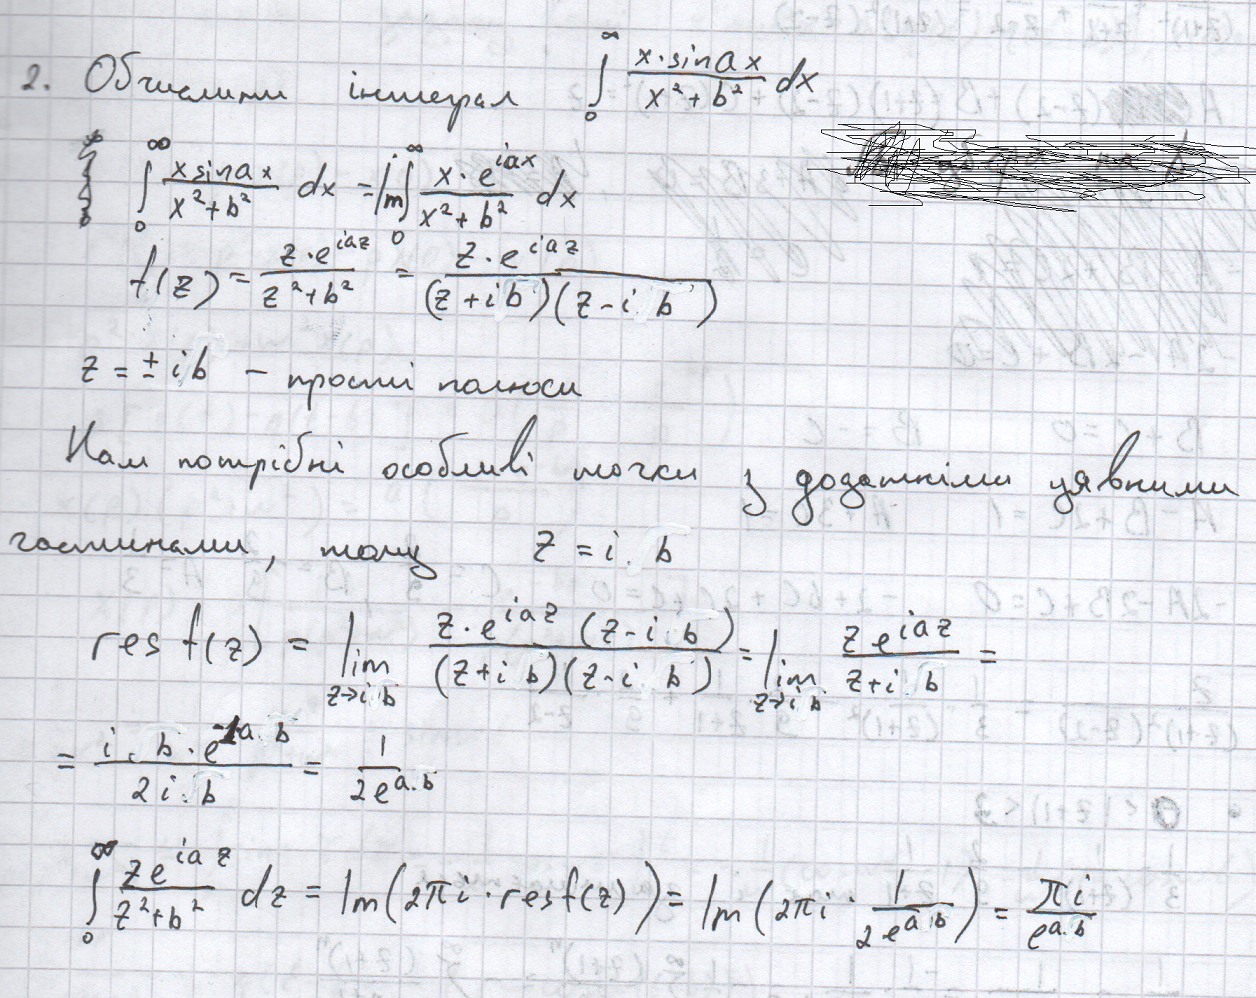 2. Обчислити інтеграл ∫₀^∞ (x·sin ax)/(x²+b²) dx
∫₀^∞ (x sin ax)/(x²+b²) dx = Im ∫₀^∞ (x·e^{iax})/(x²+b²) dx
f(z) = (z·e^{iaz})/(z²+b²) = (z·e^{iaz})/((z+ib)(z-ib))
z = ±ib – прості полюси
Нам потрібні особливі точки з додатніми уявними
частинами, тому z = i b
res f(z) = lim_{z→ib} (z·e^{iaz}(z-ib))/((z+ib)(z-ib)) = lim_{z→ib} (ze^{iaz})/(z+ib) =
= (i·b·e^{-1a·b})/(2ib) = 1/(2e^{a·b})
∫₀^∞ (ze^{iaz})/(z²+b²) dz = Im(2πi·res f(z)) = Im(2πi·1/(2e^{a·b})) = πi/e^{a·b}